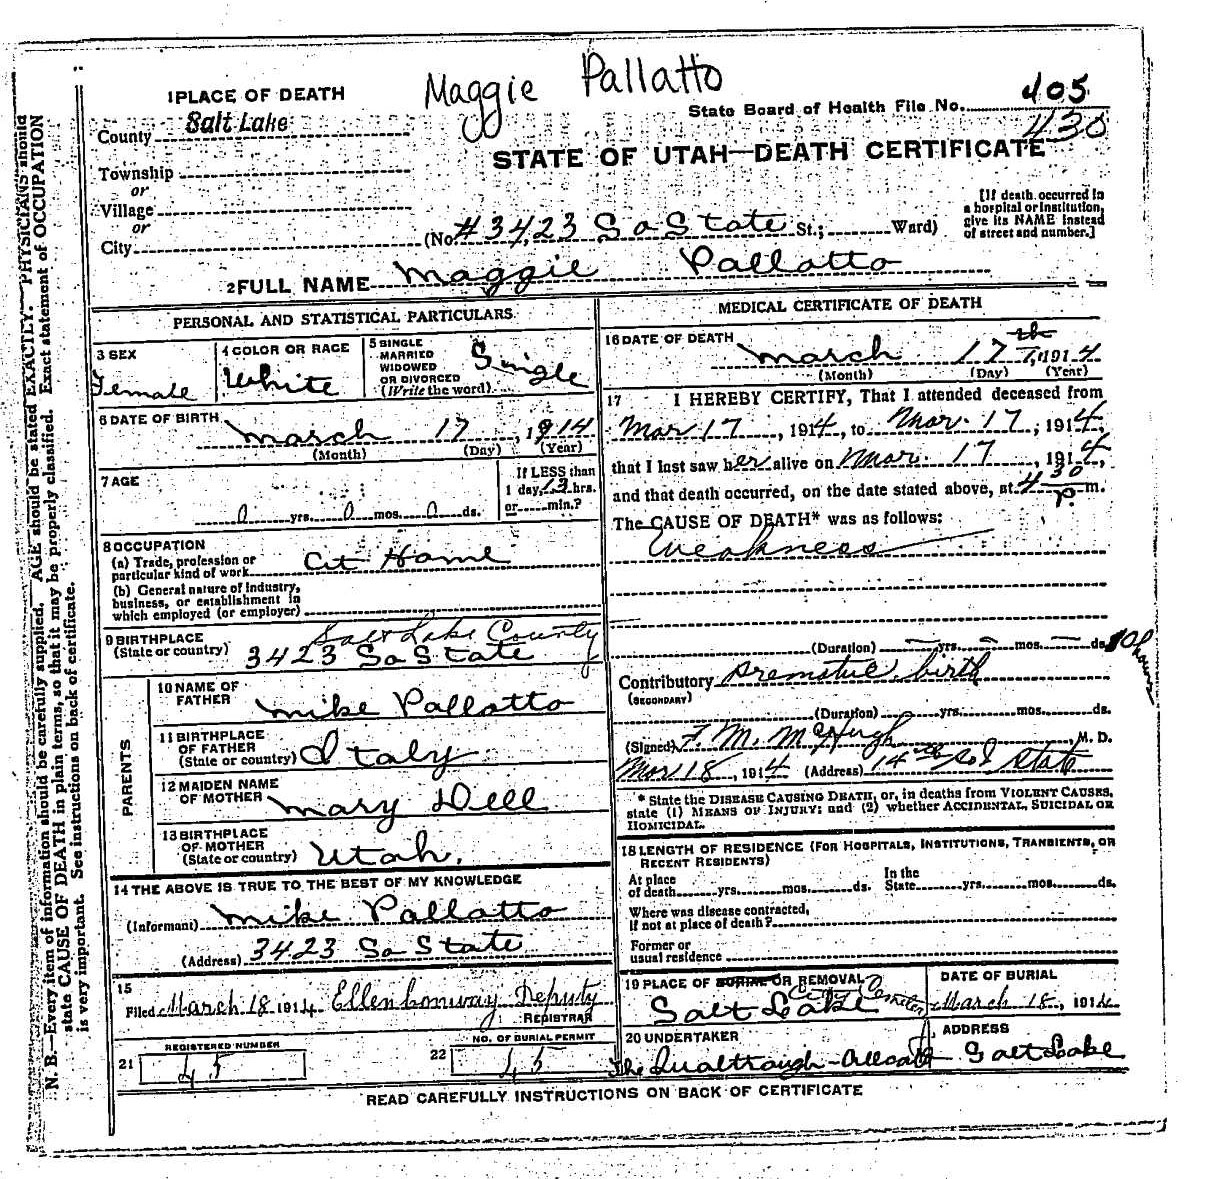 Maggie Pallatto
1 PLACE OF DEATH
State Board of Health File No. 405
430
County Salt Lake
STATE OF UTAH—DEATH CERTIFICATE
Township
or
Village
or
City
(No. #3423 So State St.; Ward)
[If death occurred in
a hospital or institution,
give its NAME instead
of street and number.]
2 FULL NAME Maggie Pallatto
PERSONAL AND STATISTICAL PARTICULARS
3 SEX
Female
4 COLOR OR RACE
White
5 SINGLE
MARRIED
WIDOWED
OR DIVORCED
(Write the word)
Single
6 DATE OF BIRTH
March 17, 1914
(Month) (Day) (Year)
7 AGE
0 yrs. 0 mos. 0 ds.
If LESS than
1 day, 13 hrs.
or min.?
8 OCCUPATION
(a) Trade, profession or
particular kind of work At Home
(b) General nature of industry,
business, or establishment in
which employed (or employer)
9 BIRTHPLACE
(State or country)
Salt Lake County
3423 So State
PARENTS
10 NAME OF
FATHER
Mike Pallatto
11 BIRTHPLACE
OF FATHER
(State or country)
Italy
12 MAIDEN NAME
OF MOTHER
Mary Dell
13 BIRTHPLACE
OF MOTHER
(State or country)
Utah.
14 THE ABOVE IS TRUE TO THE BEST OF MY KNOWLEDGE
(Informant) Mike Pallatto
(Address) 3423 So State
15
Filed March 18 1914 Ellen Conway Deputy
REGISTRAR
21
REGISTERED NUMBER
45
22
NO. OF BURIAL PERMIT
45
MEDICAL CERTIFICATE OF DEATH
16 DATE OF DEATH
March 17 th, 1914
(Month) (Day) (Year)
17 I HEREBY CERTIFY, That I attended deceased from
Mar 17, 1914, to Mar. 17, 1914,
that I last saw her alive on Mar. 17, 1914,
and that death occurred, on the date stated above, at 4 30 P. m.
The CAUSE OF DEATH* was as follows:
Weakness
(Duration) yrs. mos. ds. 10 hours
Contributory Premature birth
(SECONDARY)
(Duration) yrs. mos. ds.
(Signed) F. M. McHugh, M. D.
Mar 18, 1914 (Address) 14th So & State
* State the DISEASE CAUSING DEATH, or, in deaths from VIOLENT CAUSES,
state (1) MEANS OF INJURY; and (2) whether ACCIDENTAL, SUICIDAL OR
HOMICIDAL.
18 LENGTH OF RESIDENCE (FOR HOSPITALS, INSTITUTIONS, TRANSIENTS, OR
RECENT RESIDENTS)
At place
of death yrs. mos. ds.
In the
State yrs. mos. ds.
Where was disease contracted,
if not at place of death?
Former or
usual residence
19 PLACE OF BURIAL OR REMOVAL
Salt Lake City Cemetery
DATE OF BURIAL
March 18, 1914
20 UNDERTAKER
ADDRESS
Salt Lake
READ CAREFULLY INSTRUCTIONS ON BACK OF CERTIFICATE
N. B.—Every item of information should be carefully supplied. AGE should be stated EXACTLY. PHYSICIANS should
state CAUSE OF DEATH in plain terms, so that it may be properly classified. Exact statement of OCCUPATION
is very important. See instructions on back of certificate.